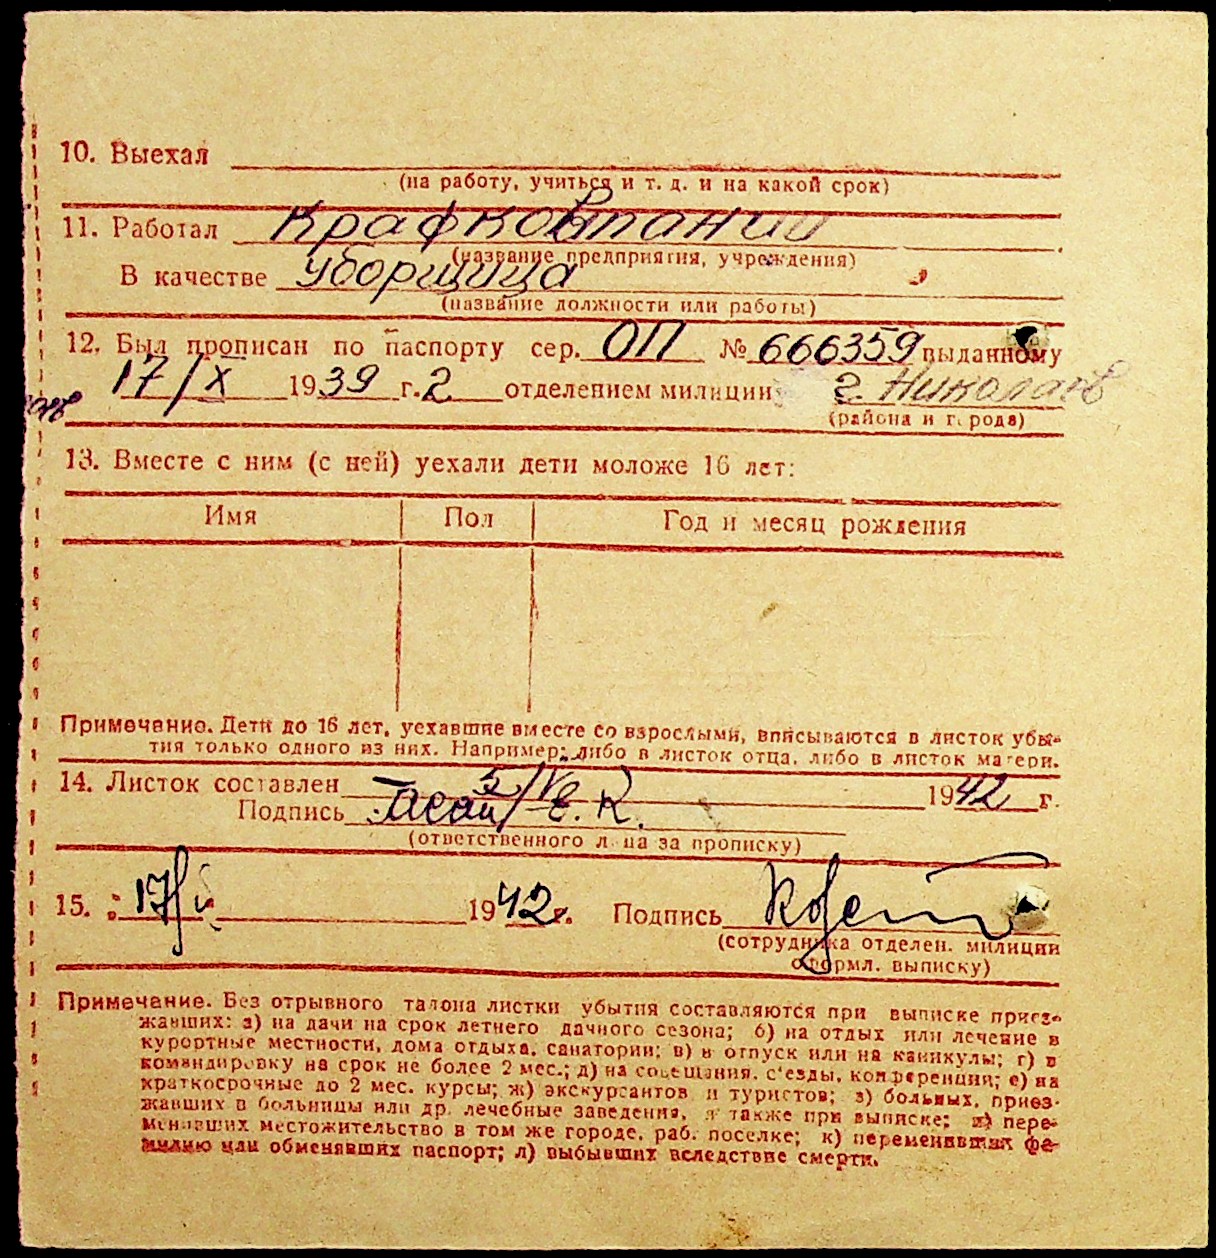 10. Выехал
(на работу, учиться и т. д. и на какой срок)
11. Работал
(название предприятия, учреждения)
В качестве уборщица
(название должности или работы)
12. Был прописан по паспорту сер. ОП № 666359 выданному
17/X 1939 г. 2 отделением милиции г. Николаев
(района и города)
13. Вместе с ним (с ней) уехали дети моложе 16 лет:
Имя Пол Год и месяц рождения
Примечание. Дети до 16 лет, уехавшие вместе со взрослыми, вписываются в листок убы-
тия только одного из них. Например: либо в листок отца, либо в листок матери.
14. Листок составлен 5/V 1942 г.
Подпись
(ответственного лица за прописку)
15. 17/ 1942 г. Подпись
(сотрудника отделен. милиции
оформл. выписку)
Примечание. Без отрывного талона листки убытия составляются при выписке приез-
жавших: а) на дачи на срок летнего дачного сезона; б) на отдых или лечение в
курортные местности, дома отдыха, санатории; в) в отпуск или на каникулы; г) в
командировку на срок не более 2 мес.; д) на совещания, с'езды, конференции; е) на
краткосрочные до 2 мес. курсы; ж) экскурсантов и туристов; з) больных, приез-
жавших в больницы или др. лечебные заведения, а также при выписке; и) пере-
менивших местожительство в том же городе, раб. поселке; к) переменивших фа-
милию или обменявших паспорт; л) выбывших вследствие смерти.